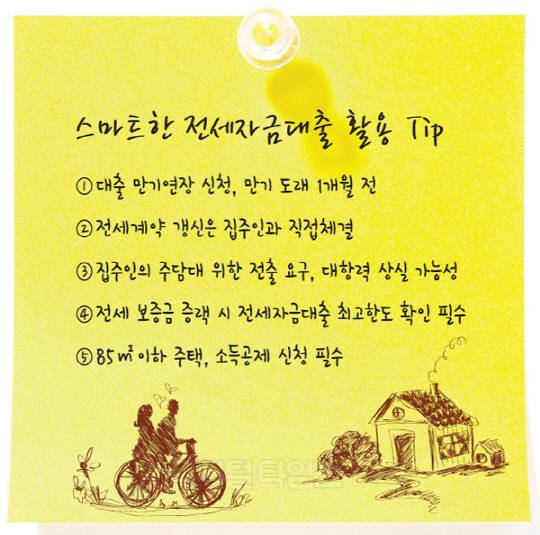 스마트한 전세자금대출 활용 Tip
① 대출 만기연장 신청, 만기 도래 1개월 전
② 전세계약 갱신은 집주인과 직접체결
③ 집주인의 주담대 위한 전출 요구, 대항력 상실 가능성
④ 전세 보증금 증액 시 전세자금대출 최고한도 확인 필수
⑤ 85㎡ 이하 주택, 소득공제 신청 필수